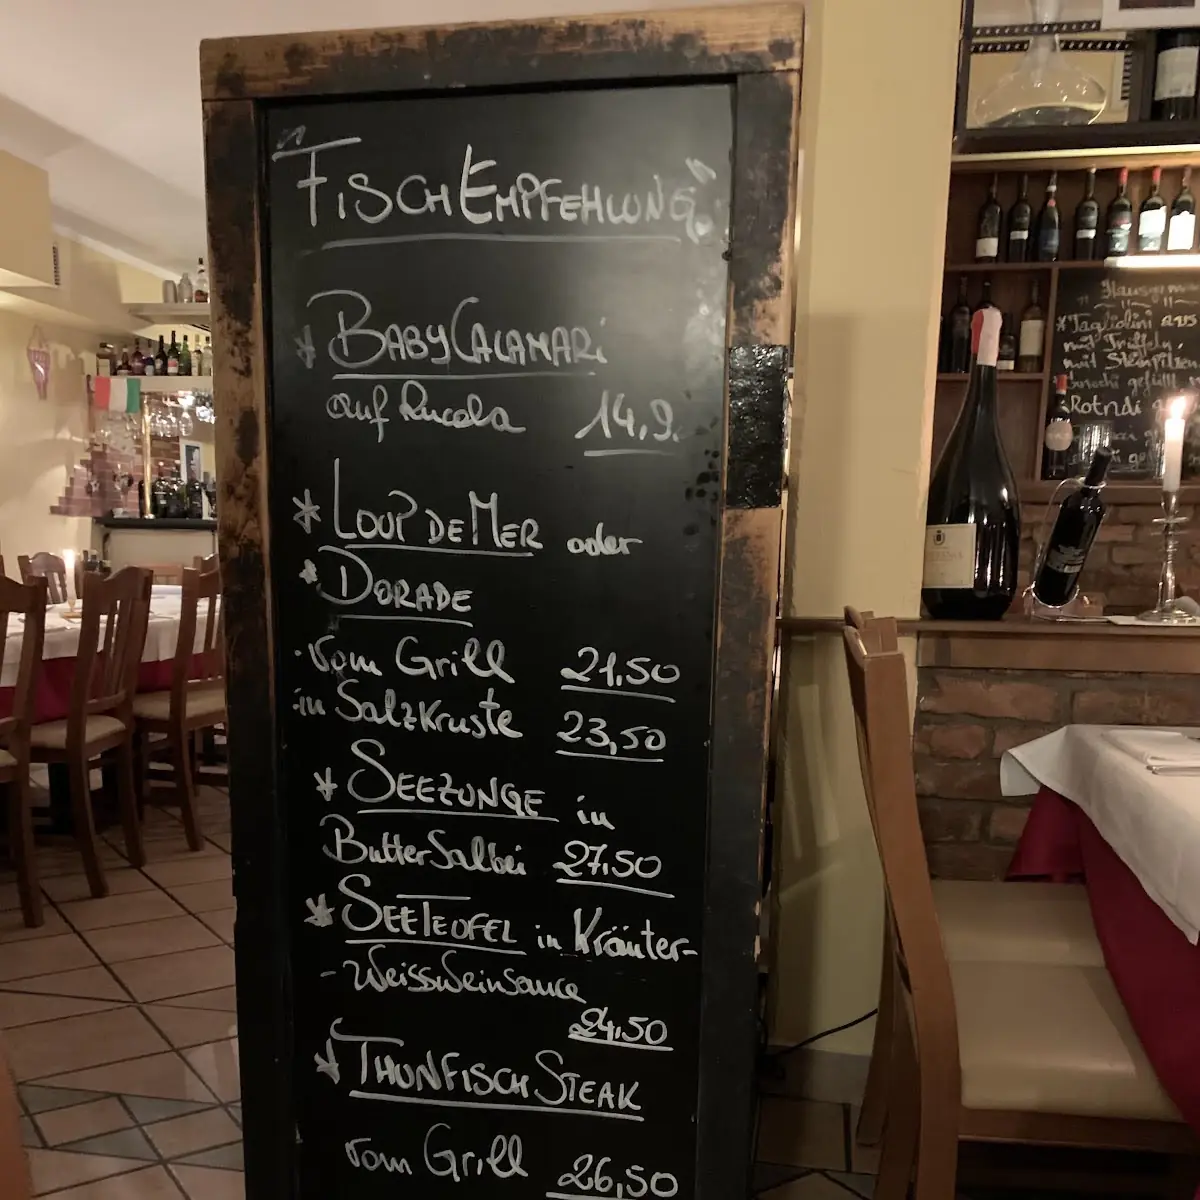 "FISCHEMPFEHLUNG"
* BABYCALAMARi
auf Rucola 14,9.
* LOUP DE MER oder
* DORADE
·vom Grill 21,50
·in SalzKruste 23,50
* SEEZUNGE in
ButterSalbei 27,50
* SEETEUFEL in Kräuter-
-Weissweinsauce
24,50
* THUNFISCHSTEAK
vom Grill 26,50
*Tagliolini
mit Trüffeln
mit Steinpilzen
gefüllt